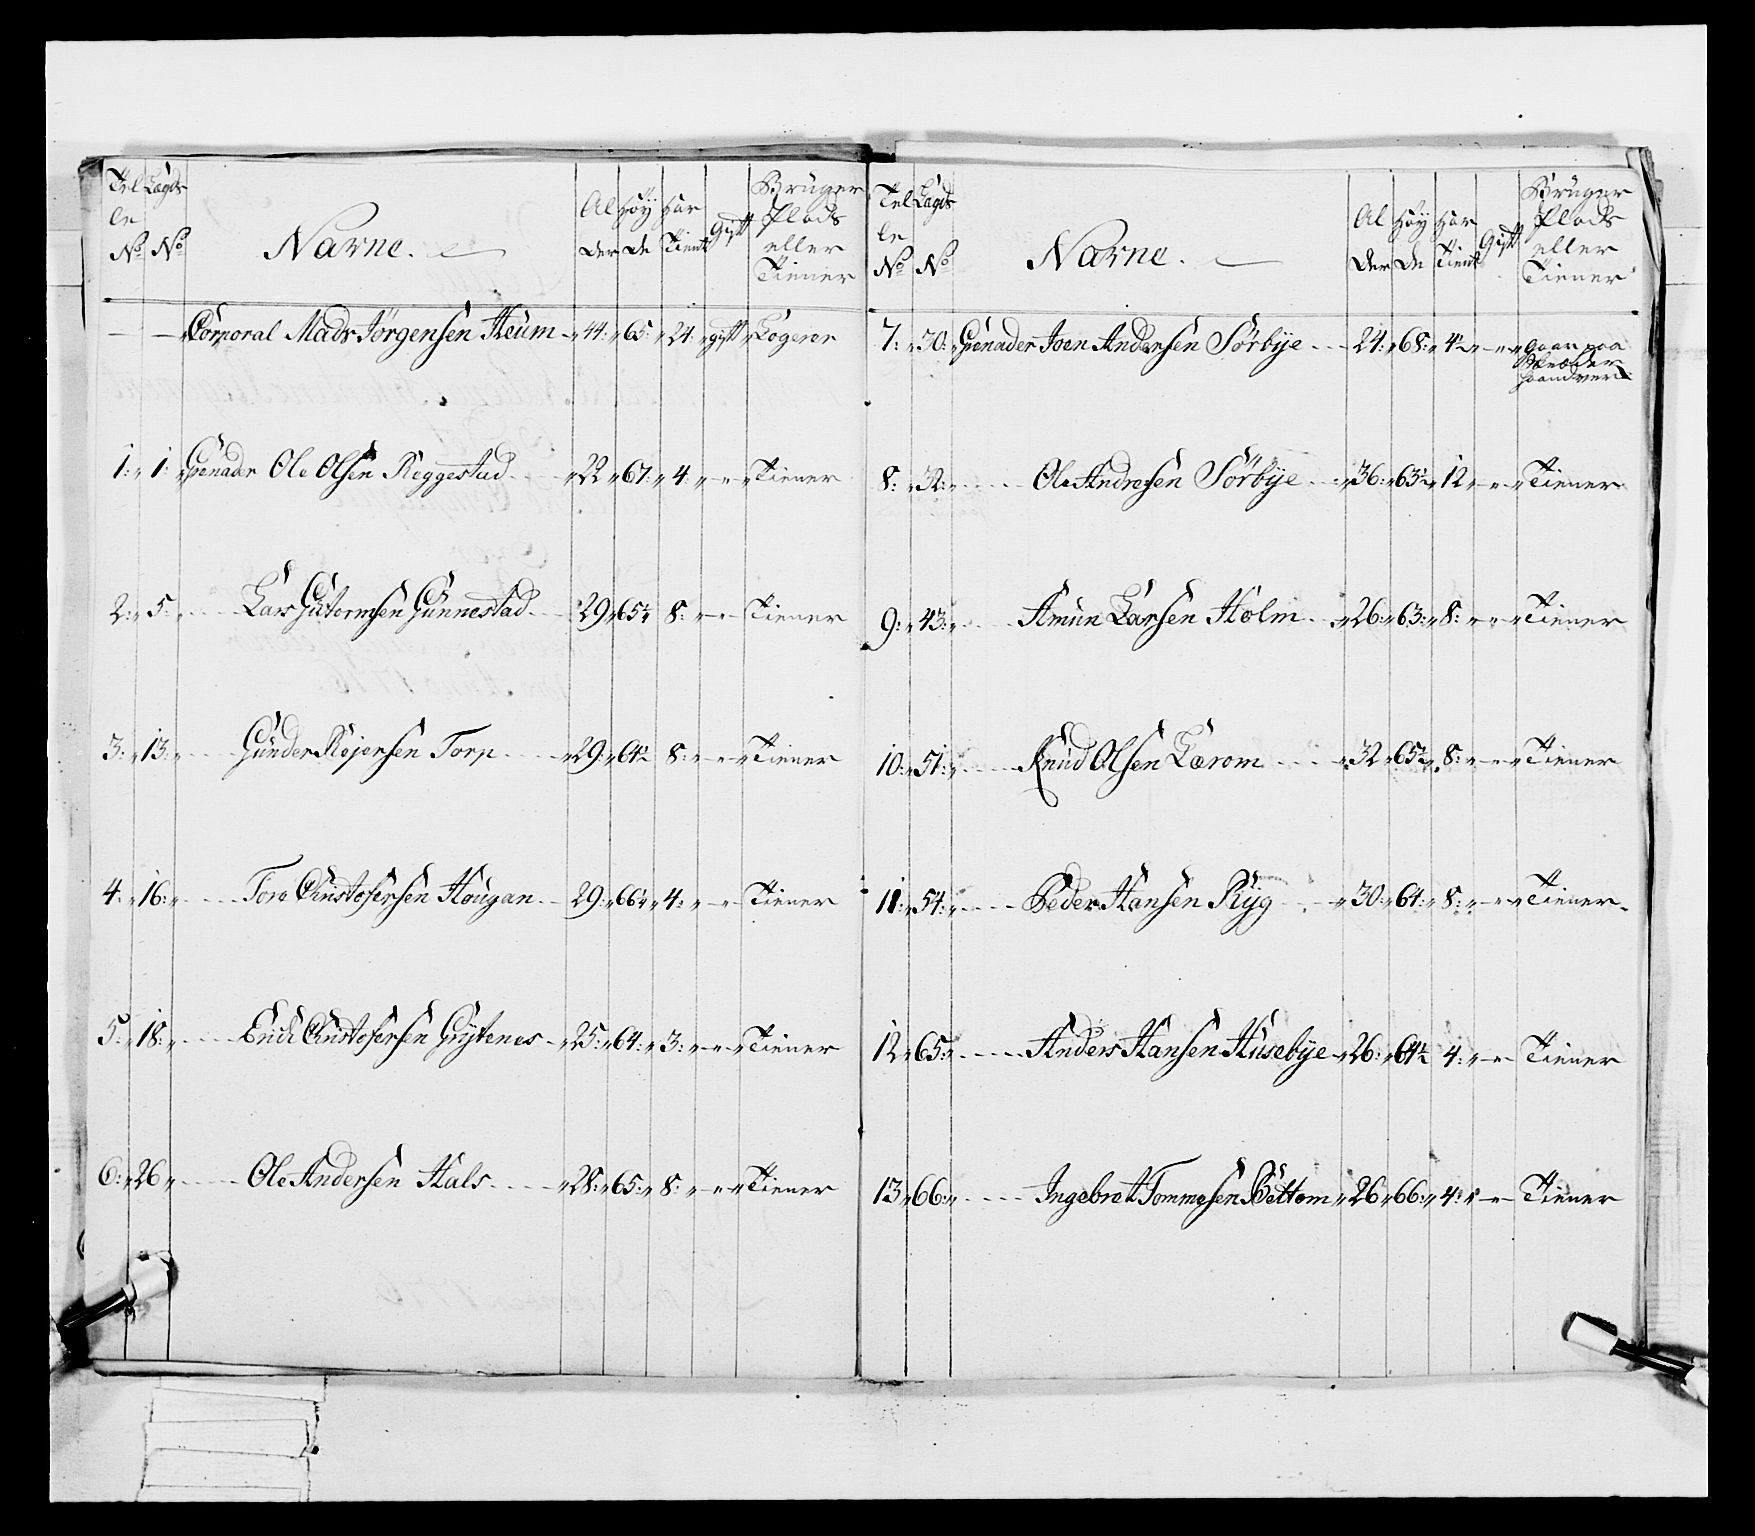 Tel Lægds
le
No No Navne.
Al Høy Har
der de Tient Gift
Brüger
Plads
eller
Tiener
Corporal Mads Jörgensen Heüm 44: 65: 24: gift Logerer
1: 1: Grenader Ole Olsen Reggestad 22 67: 4: Tiener
2: 5: Lars Guttormsen Günnestad 29 65½ 8: Tiener
3: 13: Günder Rejersen Torp 29: 64½ 8: Tiener
4: 16: Tore Christofersen Hougan 29: 66½ 4: Tiener
5: 18: Erich Christofersen Grytenes 25: 64: 3: Tiener
6: 26 Ole Andersen Hals 28: 65: 8: Tiener
Tel Lægds
le
No No Navne.
Al Høy Har
der de Tient Gift
Brüger
Plads
eller
Tiener
7: 30: Grenader Joen Andersen Sörbye 24: 68: 4 gaar paa
haandverk
8: 32: Ole Andresen Sörbye 36: 63½ 12 Tiener
9: 43: Amün Larsen Holm 26: 63: 8: Tiener
10: 51: Knüd Olsen Lærom 32 65½ 8: Tiener
11: 54: Peder Hansen Ryg 30: 64: 8: Tiener
12 65: Anders Hansen Hüsebye 26: 64½ 4: Tiener
13 66: Ingebret Tommesen Bøttom 26 66: 4: Tiener